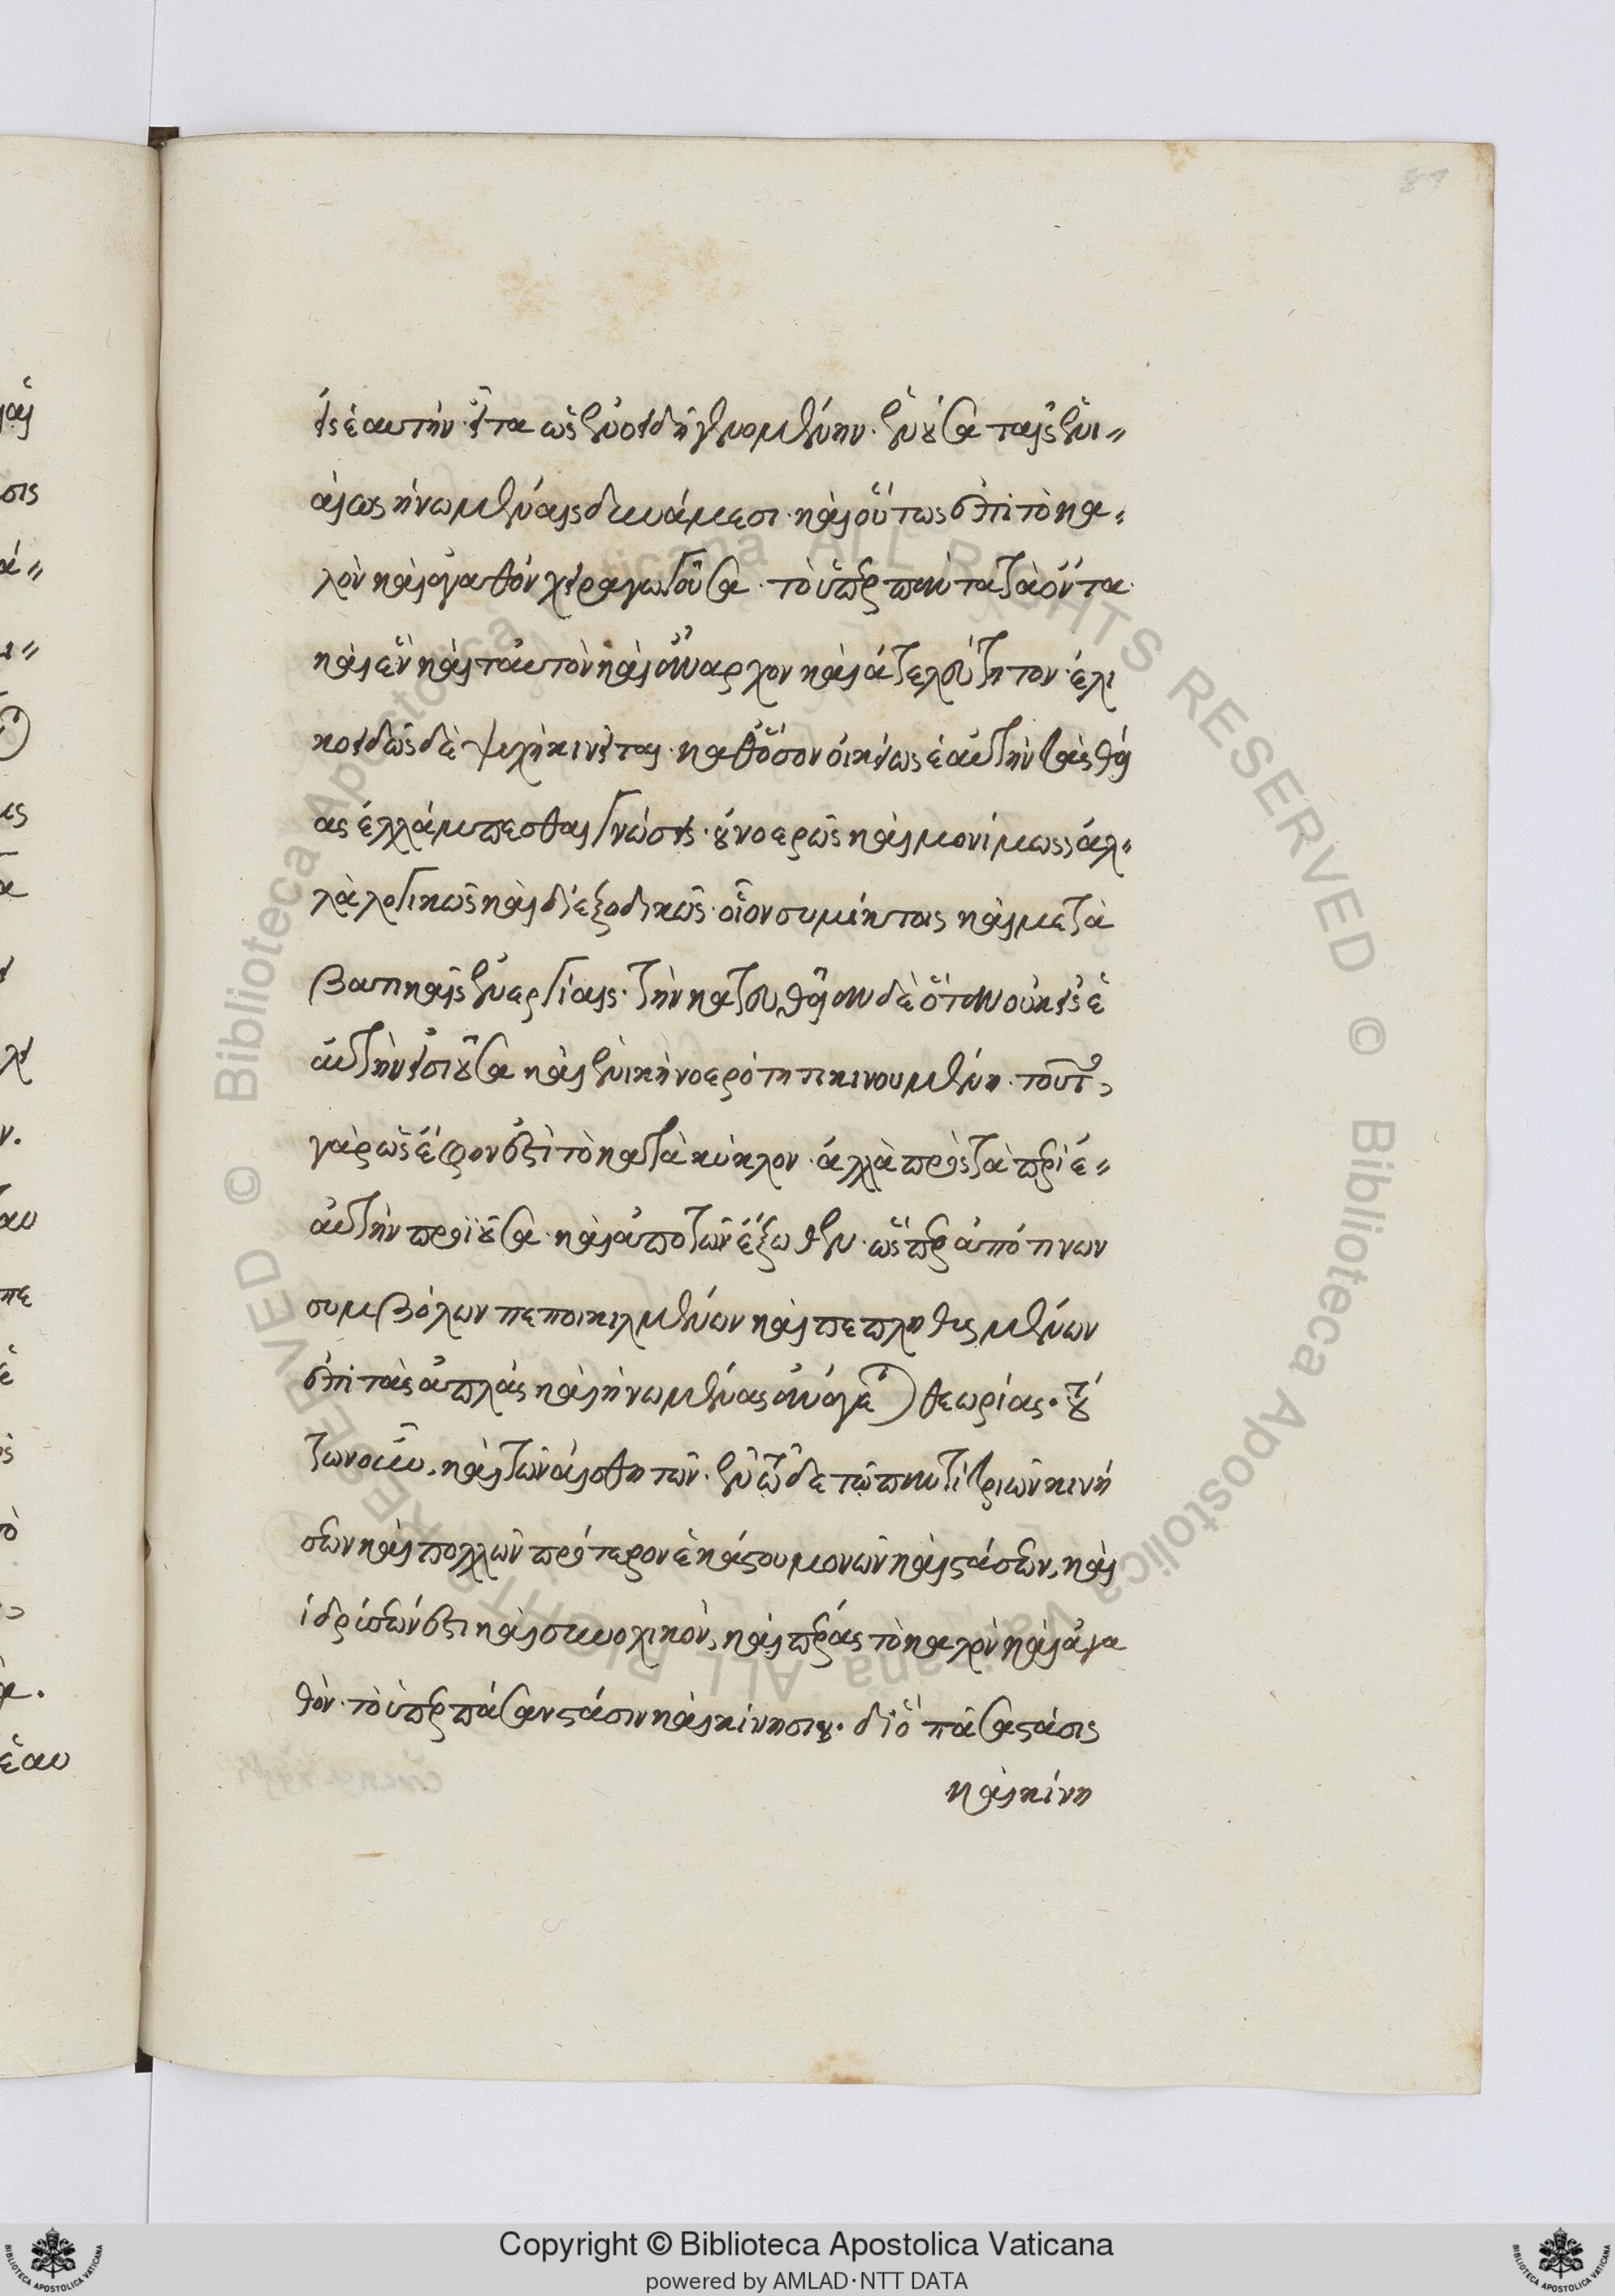 81
εἰς ἑαυτήν. εἶτα ὡς ἑνοειδῆ γενομένην. ἑνοῦσα ταῖς ἑνι-
αίως ἡνωμέναις δυνάμεσι. καὶ οὕτως ἐπὶ τὸ κα-
λὸν καὶ ἀγαθὸν χειραγωγοῦσα. τὸ ὑπὲρ πάντα τὰ ὄντα.
καὶ ἓν καὶ ταυτὸν καὶ ἄναρχον καὶ ἀτελεύτητον. ἑλι
κοειδῶς δὲ ψυχὴ κινεῖται. καθόσον οἰκείως ἑαυτὴν τὰς θεί
ας ἐλλάμπεσθαι γνώσεις. οὐ νοερῶς καὶ μονίμως, ἀλ-
λὰ λογικῶς καὶ διεξοδικῶς. οἷον συμμίκτοις καὶ μετα
βατικαῖς ἐνεργίαις. τὴν κατ' εὐθεῖαν δὲ ὅταν οὐκ εἰς ἑ
αυτὴν εἰσιοῦσα καὶ ἑνικῇ νοερότητι κινουμένη. τοῦτο
γὰρ ὡς ἔφην ἐστὶ τὸ κατὰ κύκλον. ἀλλὰ πρὸς τὰ περὶ ἑ-
αυτὴν προϊοῦσα. καὶ ἀπὸ τῶν ἔξωθεν. ὥσπερ ἀπό τινων
συμβόλων πεποικιλμένων καὶ πεπληθυσμένων
ἐπὶ τὰς ἁπλὰς καὶ ἡνωμένας ἀνάγεται θεωρίας. τού
των οὖν. καὶ τῶν αἰσθητῶν. ἐν τῷδε τῷ παντὶ τριῶν κινή
σεων καὶ πολλῶν πρότερον ἑκάστου μονῶν καὶ στάσεων. καὶ
ἱδρύσεών ἐστι καὶ συνοχικὸν, καὶ πέρας τὸ καλὸν καὶ ἀγα
θόν. τὸ ὑπὲρ πᾶσαν στάσιν καὶ κίνησιν. δι' ὃ πᾶσα στάσις
καὶ κίνη
Copyright © Biblioteca Apostolica Vaticana
powered by AMLAD·NTT DATA